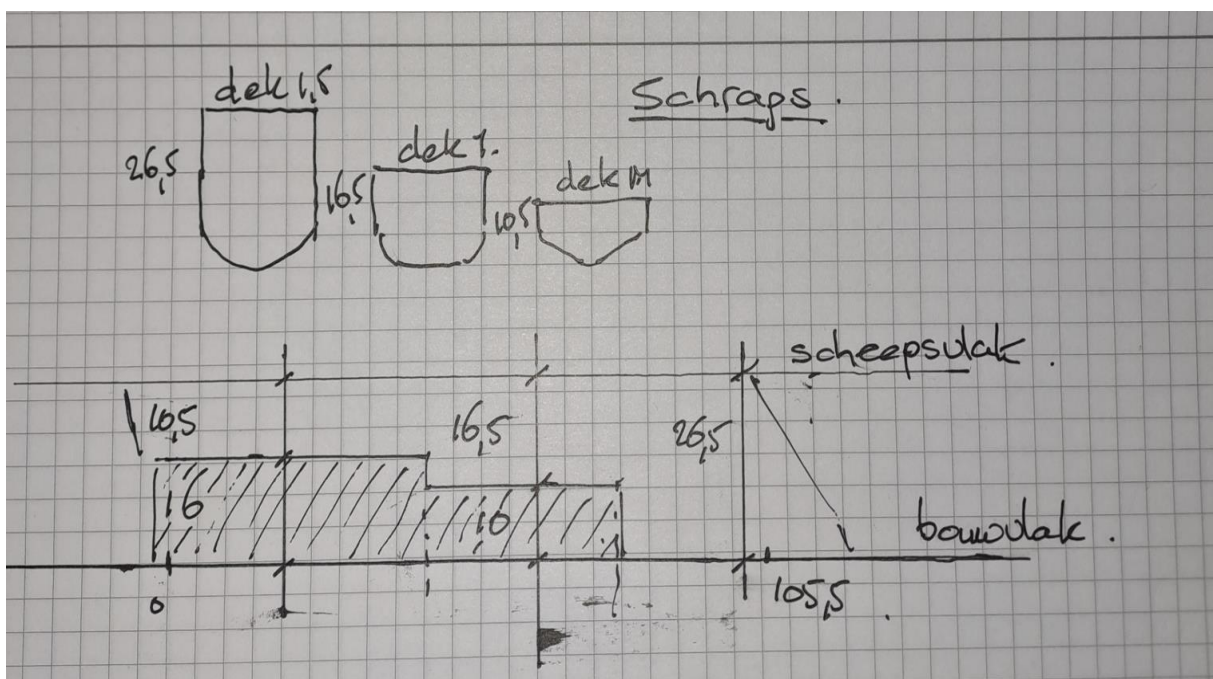 dek 1,5
Schraps.
26,5
dek 1.
16,5
dek M
10,5
scheepsvlak.
10,5
16,5
26,5
16
10
bouwvlak.
0
105,5